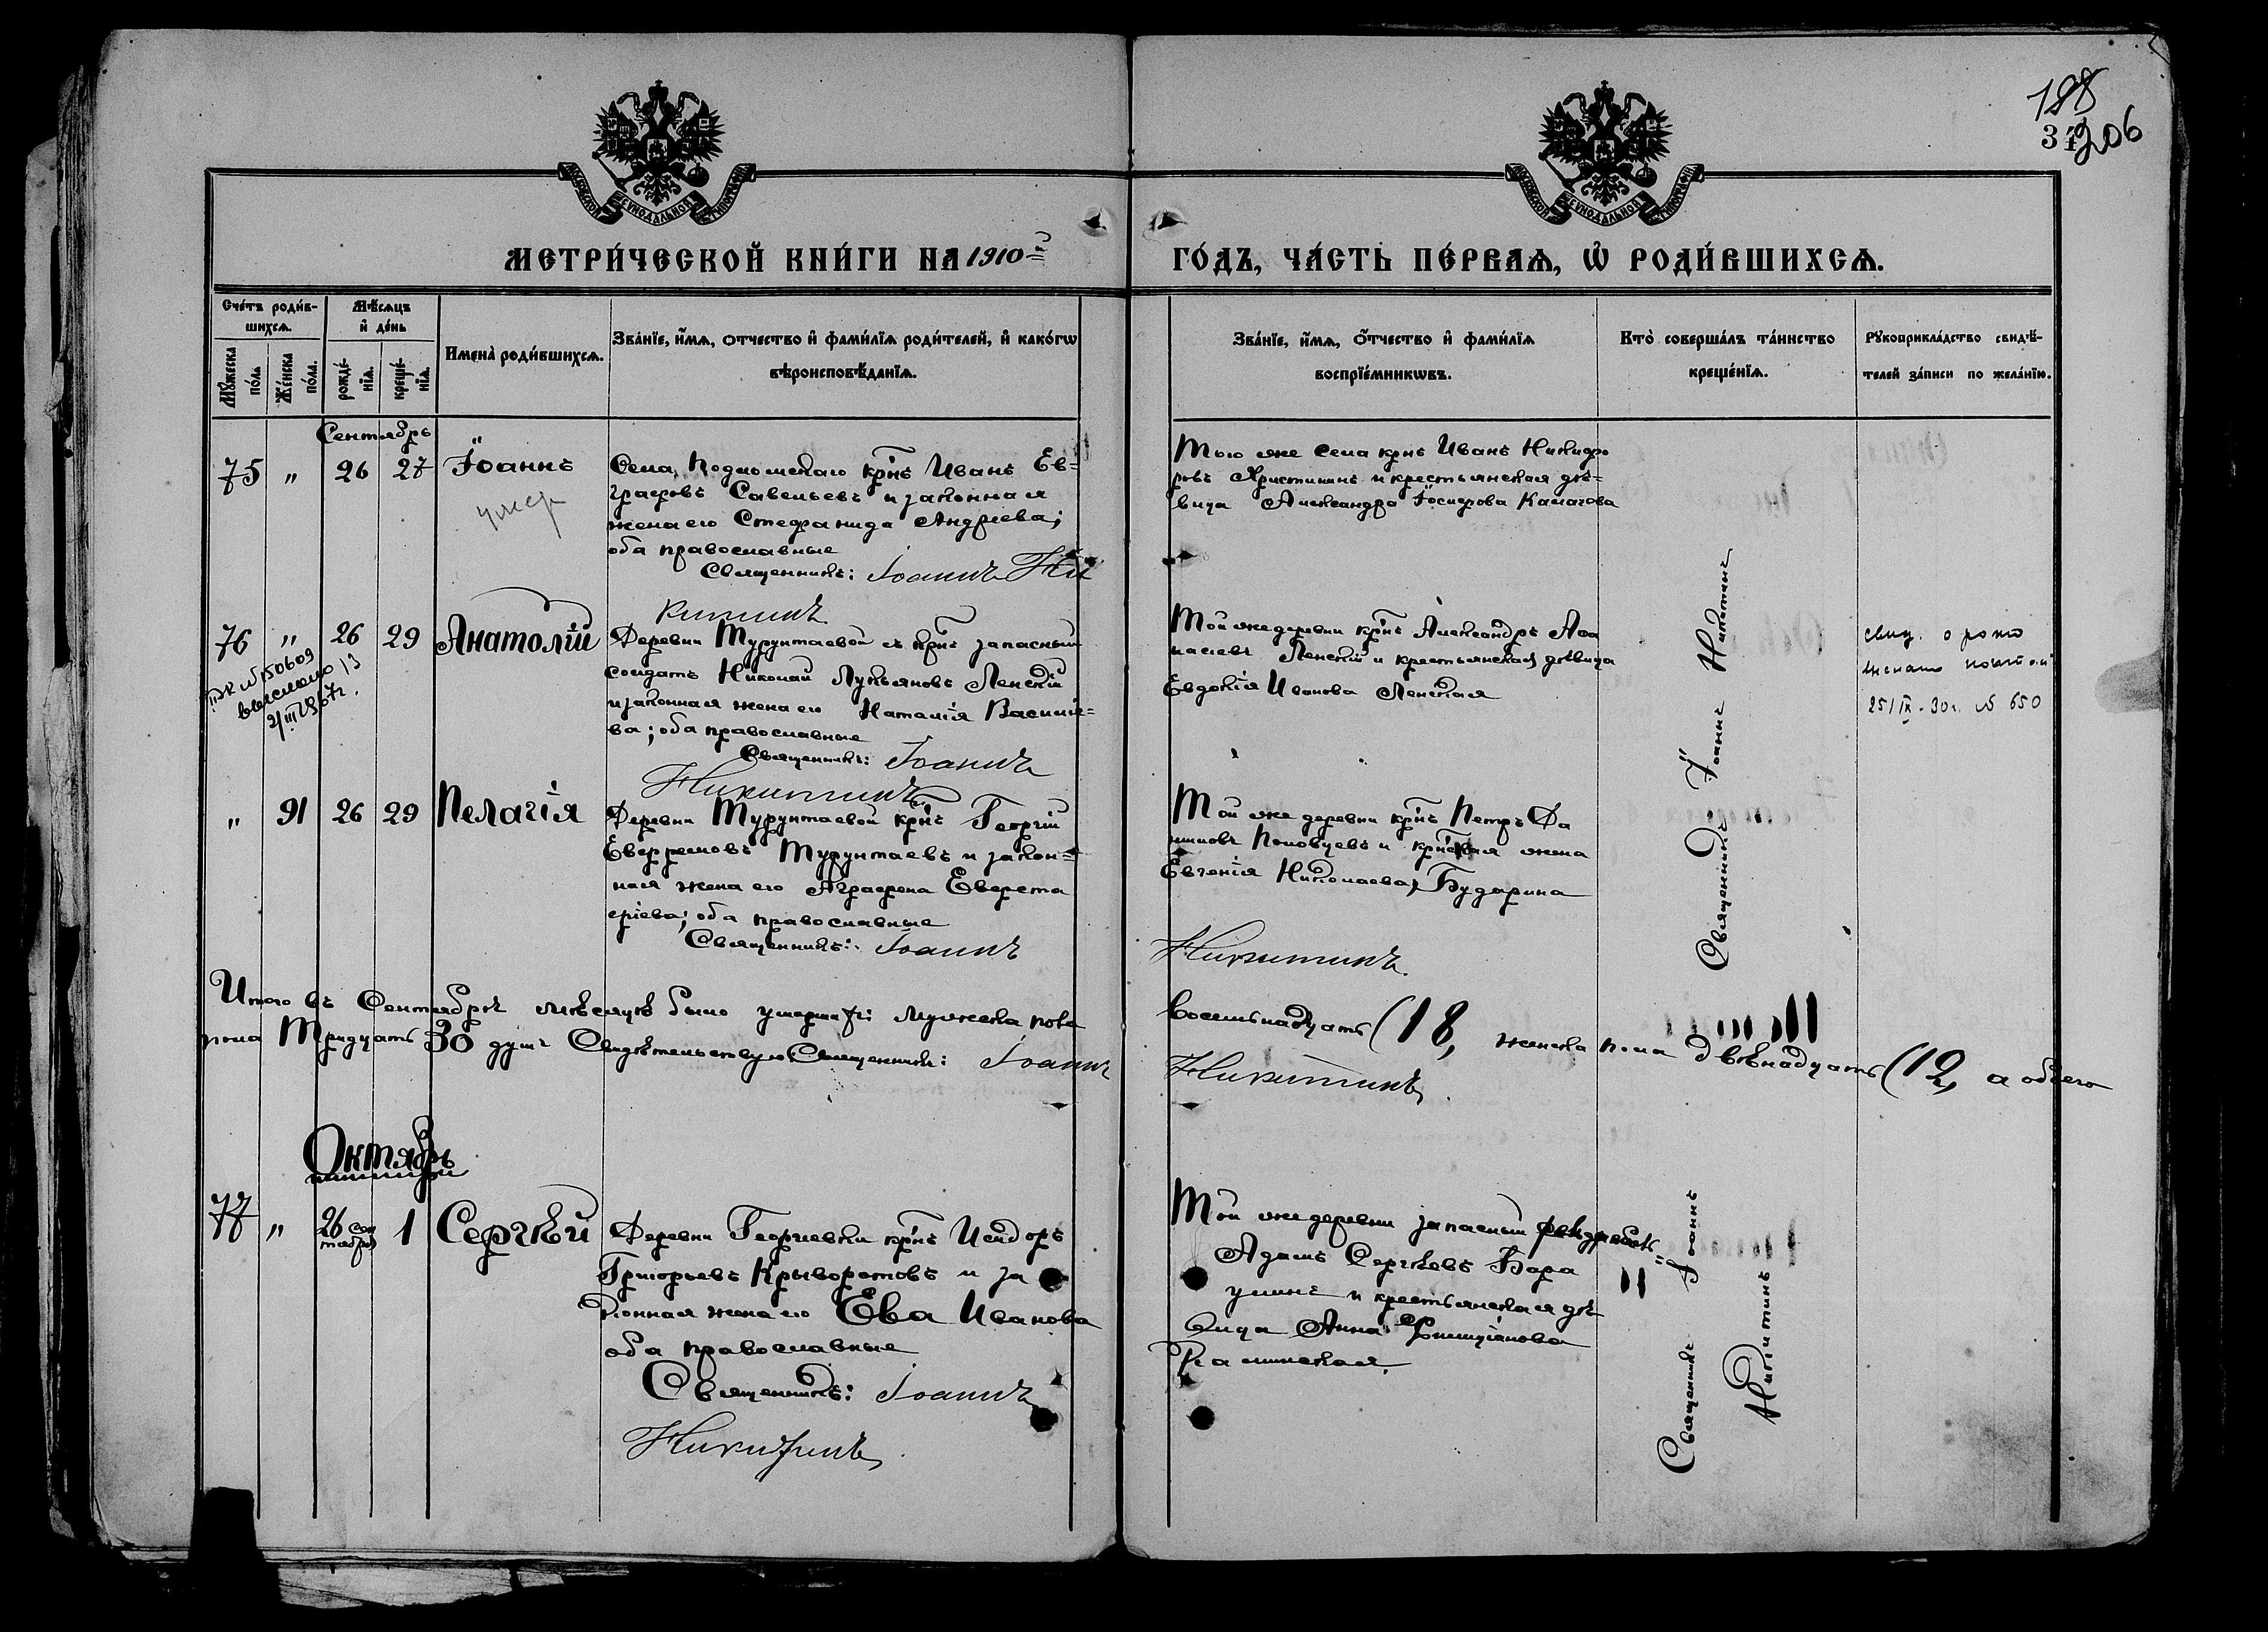 188
34
206
МОСКОВСКОЙ СѴНОДАЛЬНОЙ ТИПОГРАФІИ
МОСКОВСКОЙ СѴНОДАЛЬНОЙ ТИПОГРАФІИ
МЕТРИ́ЧЕСКОЙ КНИ́ГИ НА 1910 й
ГО́ДЪ, ЧА́СТЬ ПЕ́РВАѦ, Ѡ҆ РОДИ́ВШИХСѦ.
Сче́тъ роди́в-
шихсѧ.
Мѣ́сѧцъ
и҆ де́нь
Мꙋ́жеска
по́ла
Же́нска
по́ла.
рожде́-
нїѧ.
креще́-
нїѧ.
Имена̀ роди́вшихсѧ.
Зва́нїе, и҆́мѧ, о́тчество и҆ фами́лїѧ роди́телей, и҆ како́гѡ
вѣроисповѣ́данїѧ.
Зва́нїе, и҆́мѧ, о҆́тчество и҆ фами́лїѧ
воспрїе́мникѡвъ.
Кто̀ соверша́лъ та́инство
креще́нїѧ.
Рꙋкоприкла́дство свидѣ́-
телей за́писи по жела́нїю.
Сентябрь
75 " 26 27 Іоаннъ
умер
Села Подломскаго крнъ Иванъ Ев=
графовъ Савельевъ и законная
жена его Стефанида Андреева;
оба православные
Священникъ: Іоаннъ Ни
китинъ
Того же села крнъ Иванъ Никифо
ровъ Христининъ и крестьянская дѣ=
вица Александра Іосифова
76 " 26 29 Анатолій
№ 150609
выслано
2/III 1967 г.
Деревни Турунтаевой крнъ запасный
солдатъ Николай Лукьяновъ Ленскій
и законная жена его Наталія Василіе=
ва; оба православные
Священникъ: Іоаннъ
Никитинъ
Той же деревни крнъ Александръ Аѳа
насіевъ Ленскій и крестьянская дѣвица
Евдокія Иванова Ленская
свид. о рож
25/IX-30 г. № 650
" 91 26 29 Пелагія
Деревни Турунтаевой крнъ Георгій
Евфремовъ Турунтаевъ и закон=
ная жена его Агрефена Евреста
фріева; оба православные
Священникъ: Іоаннъ
Никитинъ
Той же деревни крнъ Петръ Да
ниловъ Половцевъ и крнская жена
Евгенія Николаева Бударина
Священникъ Іоаннъ Никитинъ
Итого въ Сентябрѣ мѣсяцѣ было умерших: мужска пола восемьнадцать (18, женска пола двѣнадцать (12, а обоего
пола Тридцать 30 душъ Свидетельствую Священникъ: Іоаннъ Никитинъ
Октябрь
77 " 26 сен
тября 1 Сергѣй
Деревни Георгиевки крнъ Исидоръ
Григорьевъ Крыворотовъ и за
конная жена его Ева Иванова
оба православные
Священникъ: Іоаннъ
Никитинъ
Той же деревни запасный
Адамъ Сергѣевъ Бара
улинъ и крестьянская дѣ
вица Анна
Священникъ Іоаннъ
Никитинъ